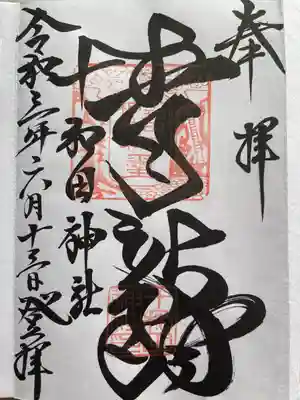 奉拝
青龍
十和田神社
令和三年六月十三日登拝